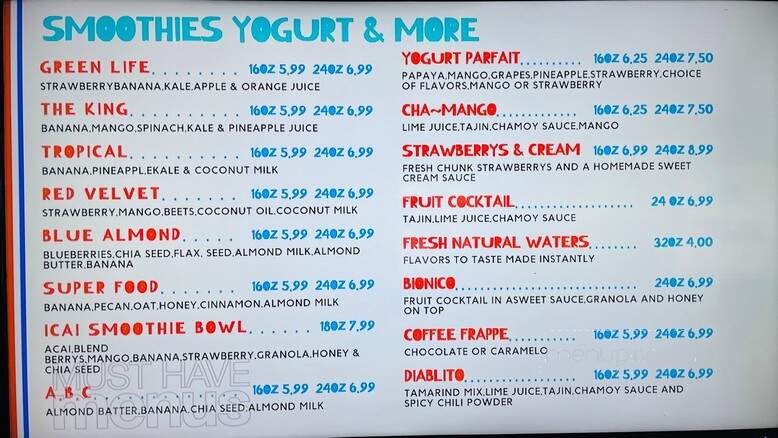 SMOOTHIES YOGURT & MORE
GREEN LIFE. . . . . . . . 16OZ 5,99 24OZ 6,99
STRAWBERRYBANANA,KALE,APPLE & ORANGE JUICE
THE KING. . . . . . . . . . 16OZ 5,99 24OZ 6,99
BANANA,MANGO,SPINACH,KALE & PINEAPPLE JUICE
TROPICAL. . . . . . . . . . 16OZ 5,99 24OZ 6,99
BANANA,PINEAPPL,EKALE & COCONUT MILK
RED VELVET. . . . . . . 16OZ 5,99 24OZ 6,99
STRAWBERRY,MANGO,BEETS,COCONUT OIL,COCONUT MILK
BLUE ALMOND. . . . . 16OZ 5,99 24OZ 6,99
BLUEBERRIES,CHIA SEED,FLAX, SEED,ALMOND MILK,ALMOND
BUTTER,BANANA
SUPER FOOD. . . . . . . 16OZ 5,99 24OZ 6,99
BANANA,PECAN,OAT,HONEY,CINNAMON,ALMOND MILK
ICAI SMOOTHIE BOWL. . . . . . 18OZ 7,99
ACAI,BLEND
BERRYS,MANGO,BANANA,STRAWBERRY,GRANOLA,HONEY &
CHIA SEED
A.B.C. . . . . . . . . . . . . 16OZ 5,99 24OZ 6,99
ALMOND BATTER,BANANA,CHIA SEED,ALMOND MILK
MUST HAVE
menus
YOGURT PARFAIT.......... 16OZ 6,25 24OZ 7,50
PAPAYA,MANGO,GRAPES,PINEAPPLE,STRAWBERRY,CHOICE
OF FLAVORS,MANGO OR STRAWBERRY
CHA~MANGO............. 16OZ 6,25 24OZ 7,50
LIME JUICE,TAJIN,CHAMOY SAUCE,MANGO
STRAWBERRYS & CREAM 16OZ 6,99 24OZ 8,99
FRESH CHUNK STRAWBERRYS AND A HOMEMADE SWEET
CREAM SAUCE
FRUIT COCKTAIL.................. 24 OZ 6,99
TAJIN,LIME JUICE,CHAMOY SAUCE
FRESH NATURAL WATERS........ 32OZ 4,00
FLAVORS TO TASTE MADE INSTANTLY
BIONICO........................... 24OZ 6,99
FRUIT COCKTAIL IN ASWEET SAUCE,GRANOLA AND HONEY
ON TOP
COFFEE FRAPPE........... 16OZ 5,99 24OZ 6,99
CHOCOLATE OR CARAMELO
DIABLITO................. 16OZ 5,99 24OZ 6,99
TAMARIND MIX,LIME JUICE,TAJIN,CHAMOY SAUCE AND
SPICY CHILI POWDER